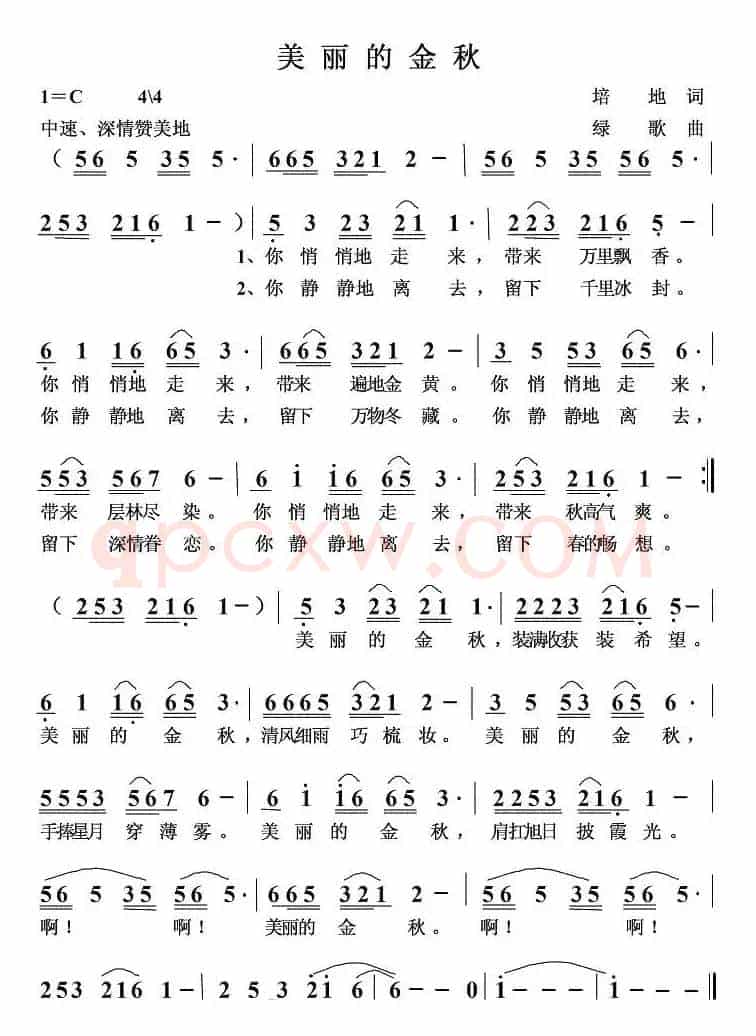 美丽的金秋
1=C 4\4 培地词
中速、深情赞美地 绿歌曲
（ 56 5 35 5· | 665 321 2 － | 56 5 35 56 5· |
253 216 1 － ）| 5 3 23 21 1· | 223 216 5 － |
1、你悄悄地走来，带来万里飘香。
2、你静静地离去，留下千里冰封。
6 1 16 65 3· | 665 321 2 － | 3 5 53 65 6· |
你悄悄地走来，带来遍地金黄。你悄悄地走来，
你静静地离去，留下万物冬藏。你静静地离去，
553 567 6 － | 6 i i6 65 3· | 253 216 1 － :||
带来层林尽染。你悄悄地走来，带来秋高气爽。
留下深情眷恋。你静静地离去，留下春的畅想。
qpcxw.COM
（ 253 216 1－）| 5 3 23 21 1· | 2223 216 5－ |
美丽的金秋，装满收获装希望。
6 1 16 65 3· | 6665 321 2－ | 3 5 53 65 6· |
美丽的金秋，清风细雨巧梳妆。美丽的金秋，
5553 567 6－ | 6 i i6 65 3· | 2253 216 1－ |
手捧星月穿薄雾。美丽的金秋，肩扛旭日披霞光。
56 5 35 56 5· | 665 321 2－ | 56 5 35 56 5· |
啊！啊！美丽的金秋。啊！啊！
253 216 1－ | 2 5 3 2i6 i | i－－0 | i－－－ ||